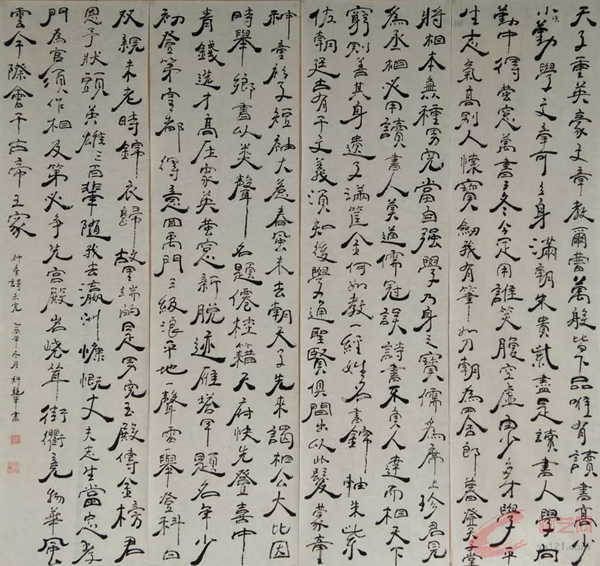 天子重英豪文章教爾曹萬般皆下品唯有讀書高少
小須勤學文章可立身滿朝朱貴紫盡是讀書人學向
勤中得螢窗萬書三冬今足用誰笑腹空虛自少多才學平
生志氣高別人懷寶劍我有筆如刀朝為田舍郎暮登天子堂
將相本無種男兒當自強學乃身之寶儒為席上珍君見
為丞相必用讀書人莫道儒冠誤詩書不負人達而相天下
窮則善其身遺子滿籯金何如教一經姓名書錦軸朱紫
佐朝廷古有千文義須知後學通聖賢俱間出以此發蒙童
神童衫子短袖大惹春風未去朝天子先來謁相公大比因
時舉鄉書以類聲名題僊桂籍天府快先登喜中
青錢選才高壓眾英螢窗新脫跡雁塔早題名年少
初登第皇都得意回禹門三級浪平地一聲雷舉登科日
双親未老時錦衣歸故里端的是男兒玉殿傳金榜君
恩予狀頭英雄三百輩隨我去瀛洲慷慨丈夫志生當忠孝
門為官須作相及第必爭先宮殿岧嶢聳街衢竞物華風
雲今際會千古帝王家